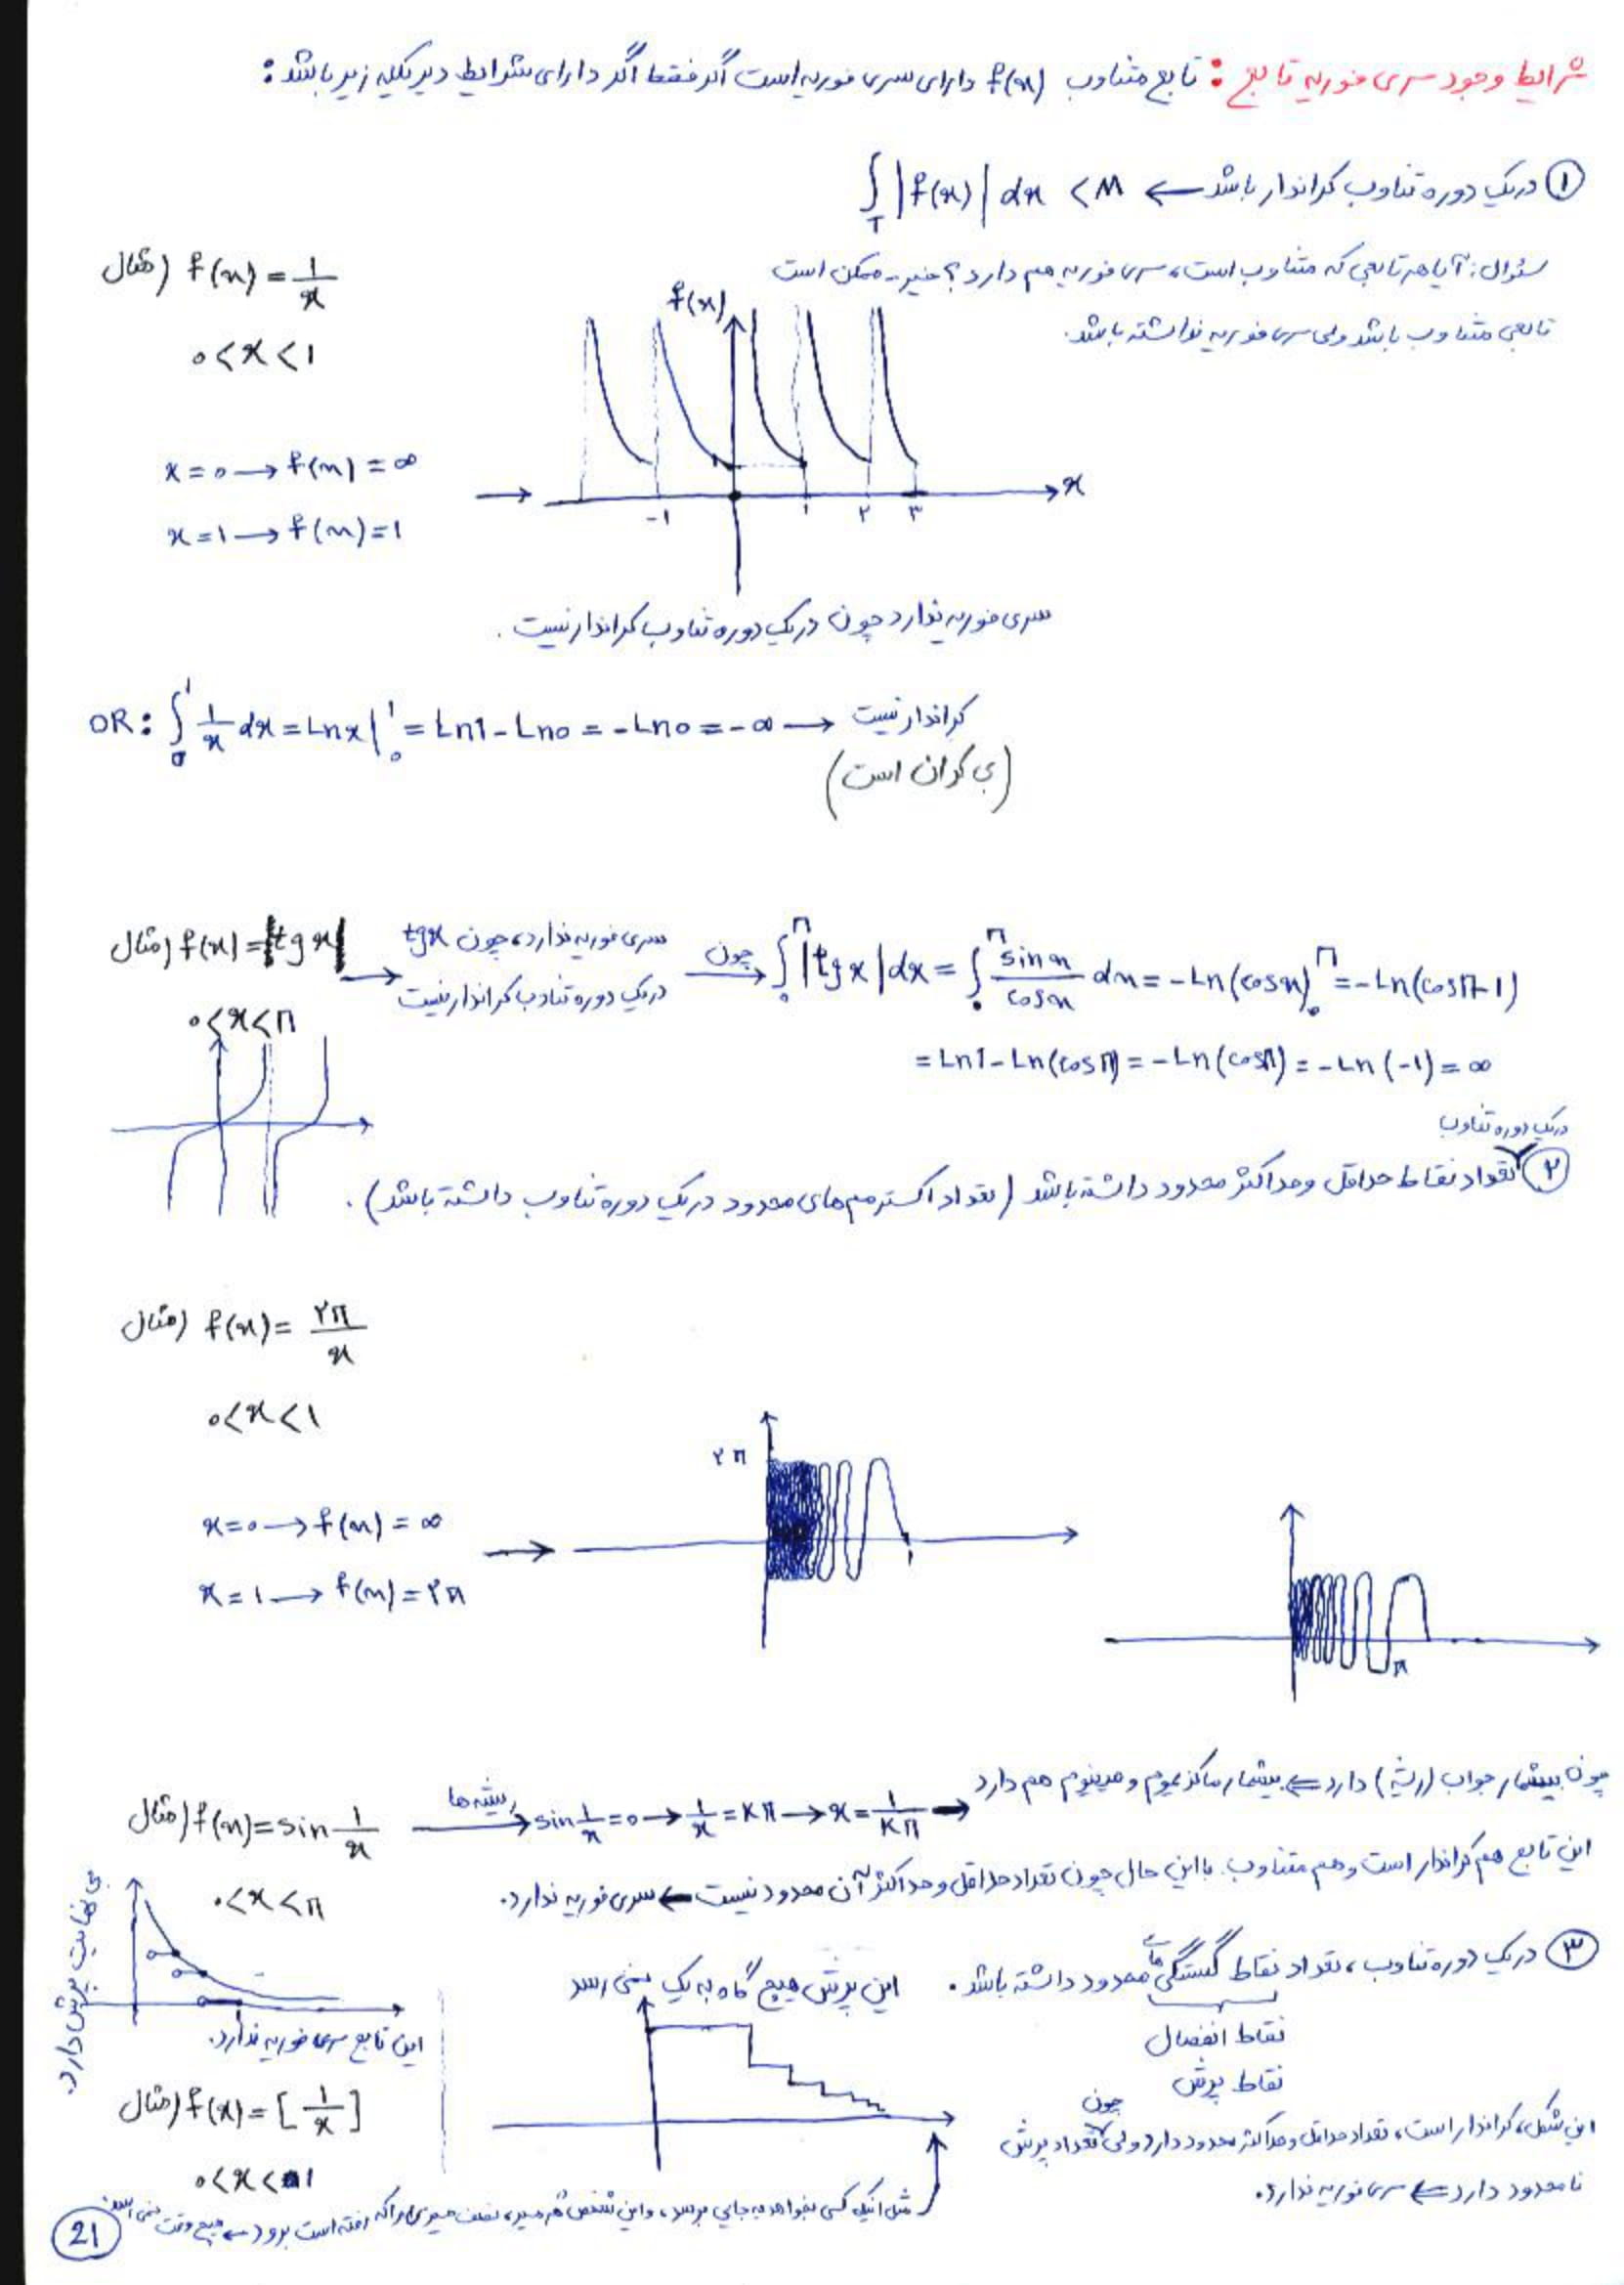 شرایط وجود سری فوریه تابع : تابع متناوب f(x) دارای سری فوریه است اگر فقط اگر دارای شرایط دیریکله زیر باشد :
① در یک دوره تناوب کراندار باشد ← ∫T |f(x)| dx < M
سئوال : آیا هر تابعی که متناوب است، سری فوریه هم دارد؟ خیر - ممکن است
تابعی متناوب باشد ولی سری فوریه نداشته باشد.
مثال) f(x) = 1/x
0 < x < 1
x = 0 → f(x) = ∞
x = 1 → f(x) = 1
→
f(x)
x
-1 1 2 3
سری فوریه ندارد چون در یک دوره تناوب کراندار نیست .
OR : ∫₀¹ 1/x dx = Ln x |₀¹ = Ln1 - Ln0 = -Ln0 = -∞ → کراندار نیست
(بی کران است)
مثال) f(x) = |tg x| → سری فوریه ندارد، چون tgx در یک دوره تناوب کراندار نیست
0 < x < π
چون → ∫₀^π |tgx| dx = ∫₀^π sin x / cos x dx = -Ln(cos x)₀^π = -Ln(cosπ-1)
= Ln1 - Ln(cosπ) = -Ln(cosπ) = -Ln(-1) = ∞
در یک دوره تناوب
② تعداد نقاط حداقل و حداکثر محدود داشته باشد (تعداد اکسترمم های محدود در یک دوره تناوب داشته باشد) .
مثال) f(x) = ۲π/x
0 < x < 1
x = 0 → f(x) = ∞
x = 1 → f(x) = ۲π
→
۲π
1
π
مثال) f(x) = sin 1/x ریشه ها → sin 1/x = 0 → 1/x = Kπ → x = 1/Kπ → چون بیشمار جواب (ریشه) دارد ⇐ بیشمار ماکزیموم و مینیوم هم دارد
0 < x < π
این تابع هم کراندار است و هم متناوب. با این حال چون تعداد حداقل و حداکثر آن محدود نیست ← سری فوریه ندارد.
③ در یک دوره تناوب، تعداد نقاط گسستگی های محدود داشته باشد .
نقاط انفصال
نقاط پرش
این پرش هیچ گاه به یک نمی رسد
بی نهایت پرش دارد.
این تابع سری فوریه ندارد.
مثال) f(x) = [1/x]
0 < x < 1
چون
این شکل، کراندار است، تعداد حداقل و حداکثر محدود دارد ولی تعداد پرش
نامحدود دارد ⇐ سری فوریه ندارد.
مثل اینکه کسی بخواهد به جایی برسد، و این شخص هر مسیر، نصف مسیری را که رفته است برود ← هیچ وقت نمی رسد.
21